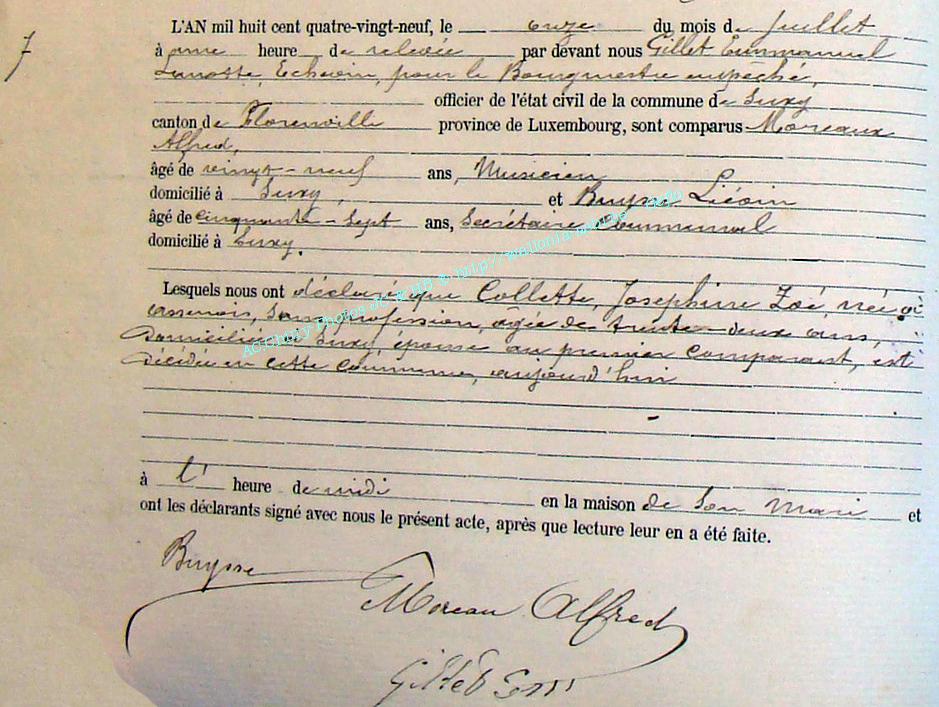 7
L'AN mil huit cent quatre-vingt-neuf, le onze du mois de Juillet
à une heure de relevée par devant nous Gillet Emmanuel
Echevin, pour le Bourgmestre empêché,
officier de l'état civil de la commune de Suxy
canton de Florenville province de Luxembourg, sont comparus Moreaux
Alfred,
âgé de vingt-neuf ans, Musicien
domicilié à Suxy, et Buysse
âgé de cinquante-sept ans, Secrétaire Communal
domicilié à Suxy.
Lesquels nous ont déclaré que Collette, Joséphine Zoé, née à
Assenois, sans profession, âgée de trente-deux ans,
domiciliée à Suxy, épouse au premier comparant, est
décédée en cette commune, aujourd'hui
à l' heure de midi en la maison de son mari et
ont les déclarants signé avec nous le présent acte, après que lecture leur en a été faite.
Buysse
Moreau Alfred
Gillet